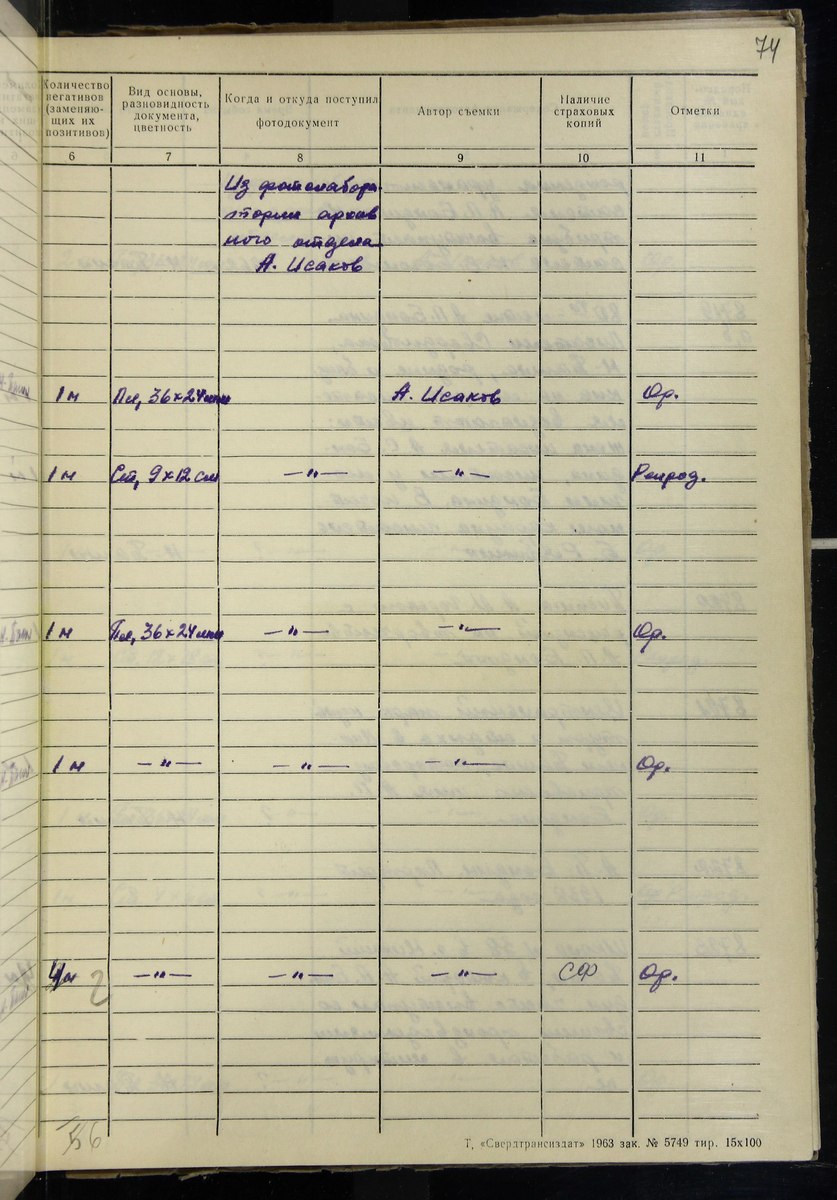 74
Количество негативов (заменяющих их позитивов) Вид основы, разновидность документа, цветность Когда и откуда поступил фотодокумент Автор съемки Наличие страховых копий Отметки
6 7 8 9 10 11
Из фотолабора-
тории архив
ного отдела
А. Исаков
1 н Пл, 36×24мм А. Исаков Ор.
1 н Ст, 9×12 см —"— —"— Репрод.
1 н Пл, 36×24мм —"— —"— Ор.
1 н —"— —"— —"— Ор.
2 —"— —"— —"— СФ Ор.
Т, «Свердтрансиздат» 1963 зак. № 5749 тир. 15х100